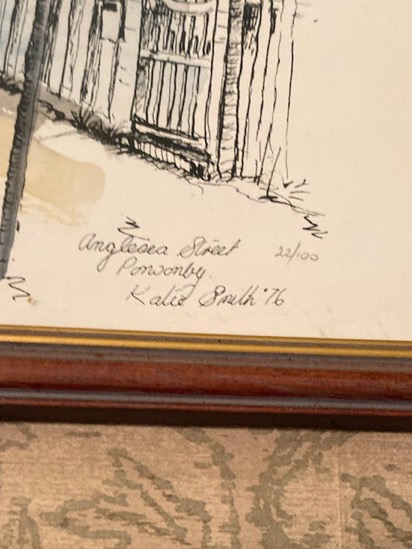 Anglesea Street 22/100
Ponsonby.
Katie Smith '76